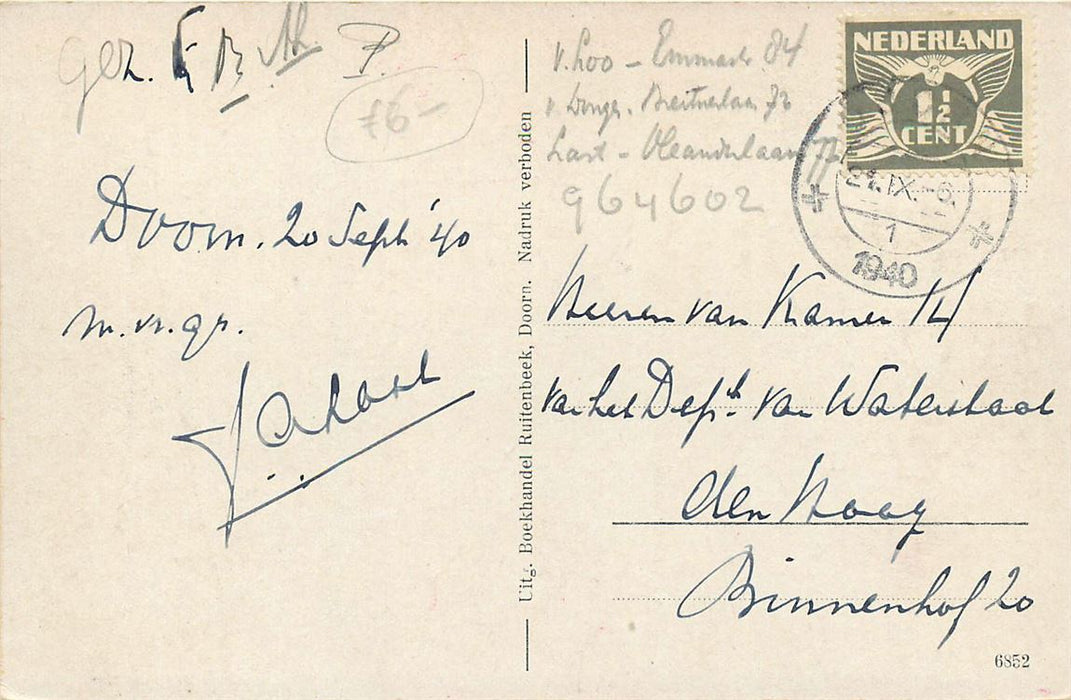 Gez.
P.
f6-
Doorn. 20 Sept '40
m. vr. gr.
Uitg. Boekhandel Ruitenbeek, Doorn. Nadruk verboden
v. Loo - Emmastr. 84
v. Dongen. Breitnerlaan 72
Last - Oleanderlaan 72
964602
NEDERLAND
1½
CENT
21.IX.-6.
1
1940
Heeren van Kamer 14
van het Dept. van Waterstaat
den Haag
Binnenhof 20
6852